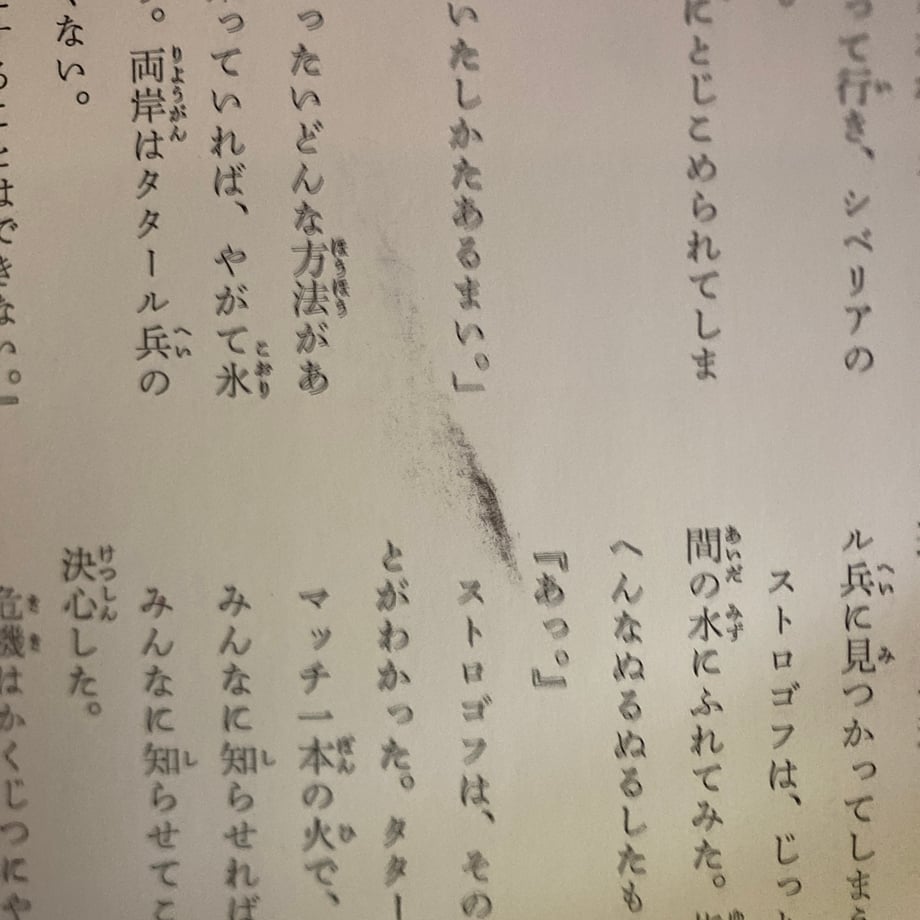 って行き、シベリアの
。
にとじこめられてしま
いたしかたあるまい。」
ったいどんな方法があ
っていれば、やがて氷
。両岸はタタール兵の
ない。
することはできない。』
ル兵に見つかってしまう
ストロゴフは、じっ
間の水にふれてみた。
へんなぬるぬるしたも
『あっ。』
ストロゴフは、その
とがわかった。タター
マッチ一本の火で、
みんなに知らせれば
みんなに知らせてこ
決心した。
危機はかくじつにや